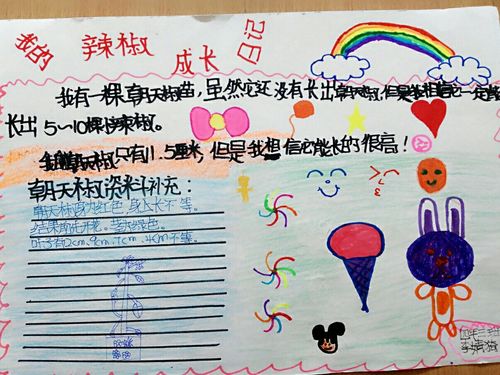 我的辣椒成长日记
我有一棵朝天椒苗，虽然它还没有长出朝天椒，但是我相信它一定能
长出5~10棵辣椒。
只有11.5厘米，但是我想信它能长的很高！
朝天椒资料补充：
朝天椒为红色，身长不等。
结果前先开花。茎为绿色。
叶子有12cm、9cm、7cm、4cm不等。